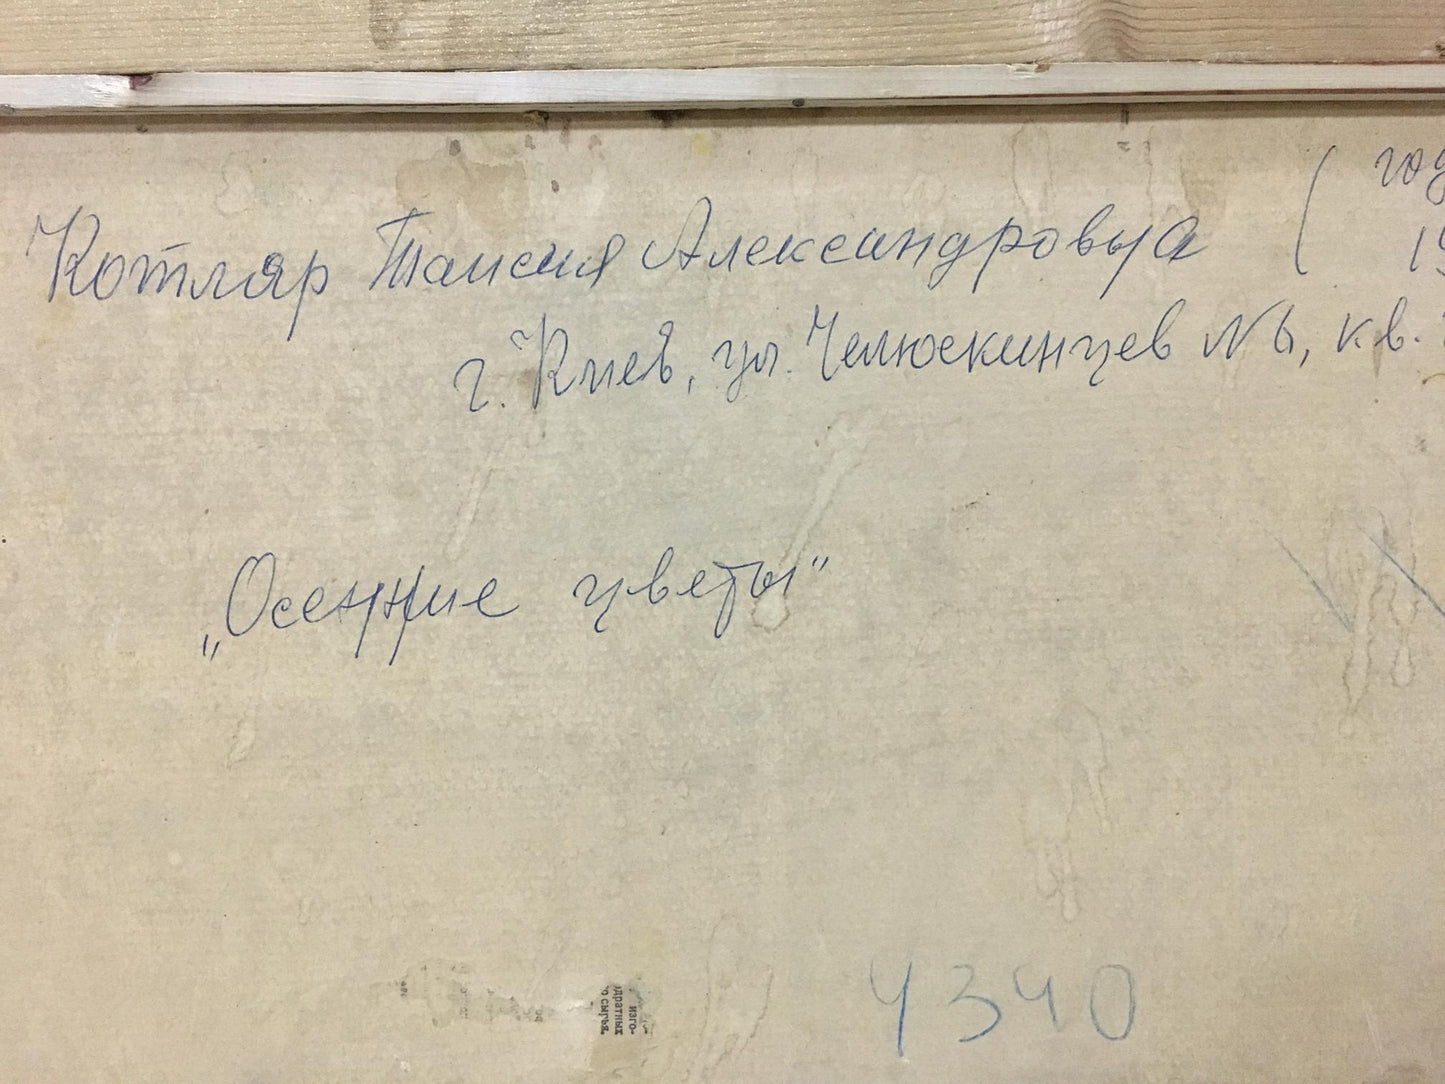 Котляр Таисия Александровна ( год
19
г. Киев, ул. Челюскинцев №6, кв.
„Осенние цветы"
4340
изго-
дратных
о сырья.